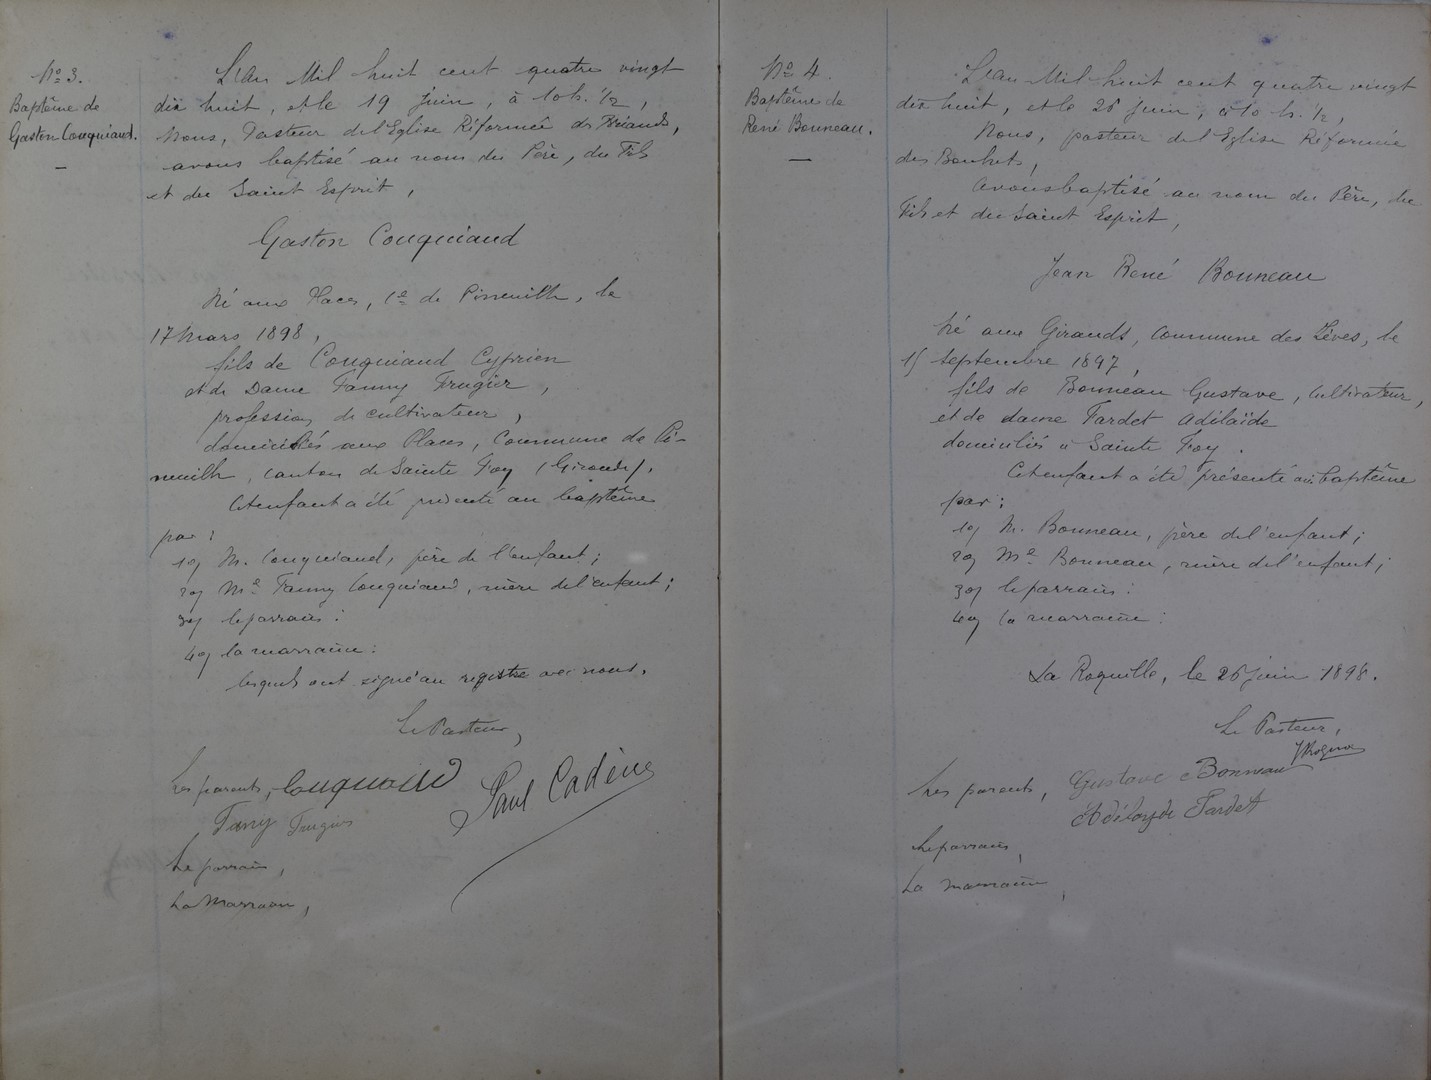 No 3.
Baptême de
Gaston Couquiaud.
L'An Mil huit cent quatre vingt
dix huit, et le 19 juin, à 10 h. 1/2,
Nous, Pasteur de l'Eglise Réformée des Briands,
avons baptisé au nom du Père, du Fils
et du Saint Esprit,
Gaston Couquiaud
Né aux Places, Cne de Pineuilh, le
17 Mars 1898,
fils de Couquiaud Cyprien
et de Dame Fanny Frugier,
profession de cultivateur,
domiciliés aux Places, Commune de Pi-
neuilh, canton de Sainte Foy (Gironde).
Cet enfant a été présenté au baptême
par:
1º/ M. Couquiaud, père de l'enfant;
2º/ Me Fanny Couquiaud, mère de l'enfant;
3º/ le parrain:
4º/ la marraine:
lesquels ont signé au registre avec nous.
Le Pasteur,
Les parents, Couquiaud Paul Cadène
Fany Frugier
Le parrain,
La Marraine,
No 4.
Baptême de
René Bonneau.
L'an Mil huit cent quatre vingt
dix huit, et le 26 juin, à 10 h. 1/2,
Nous, pasteur de l'Eglise Réformée
des Bouhets,
Avons baptisé au nom du Père, du
Fils et du Saint Esprit,
Jean René Bonneau
Né aux Girauds, Commune des Lèves, le
15 Septembre 1897,
fils de Bonneau Gustave, cultivateur,
et de dame Tardet Adélaïde
domiciliés à Sainte Foy.
Cet enfant a été présenté au baptême
par:
1º/ M. Bonneau, père de l'enfant;
2º/ Me Bonneau, mère de l'enfant;
3º/ le parrain:
4º/ la marraine:
La Roquille, le 26 juin 1898.
Le Pasteur,
Les parents, Gustave Bonneau
Adélayde Tardet
Le parrain,
La marraine,